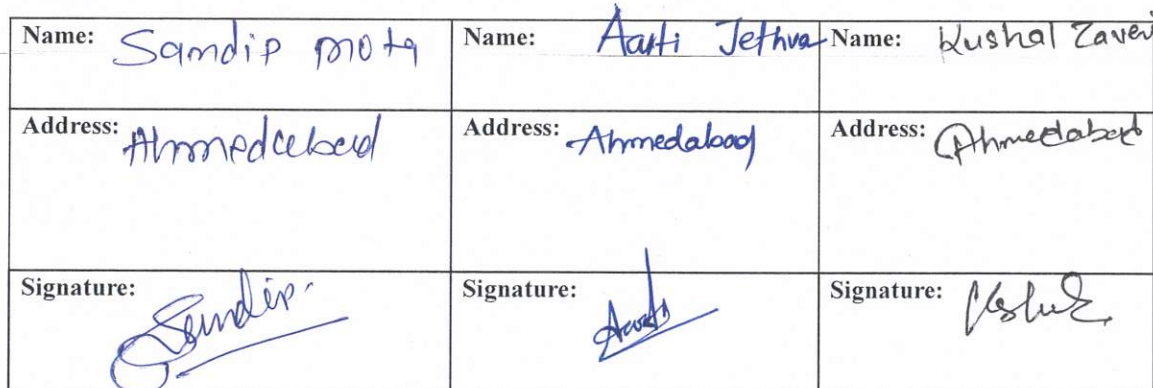 Name: Sandip mota Name: Aarti Jethva Name: Kushal Zaveri
Address: Ahmedabad Address: Ahmedabad Address: Ahmedabad
Signature: Sandip. Signature: Aarti Signature: